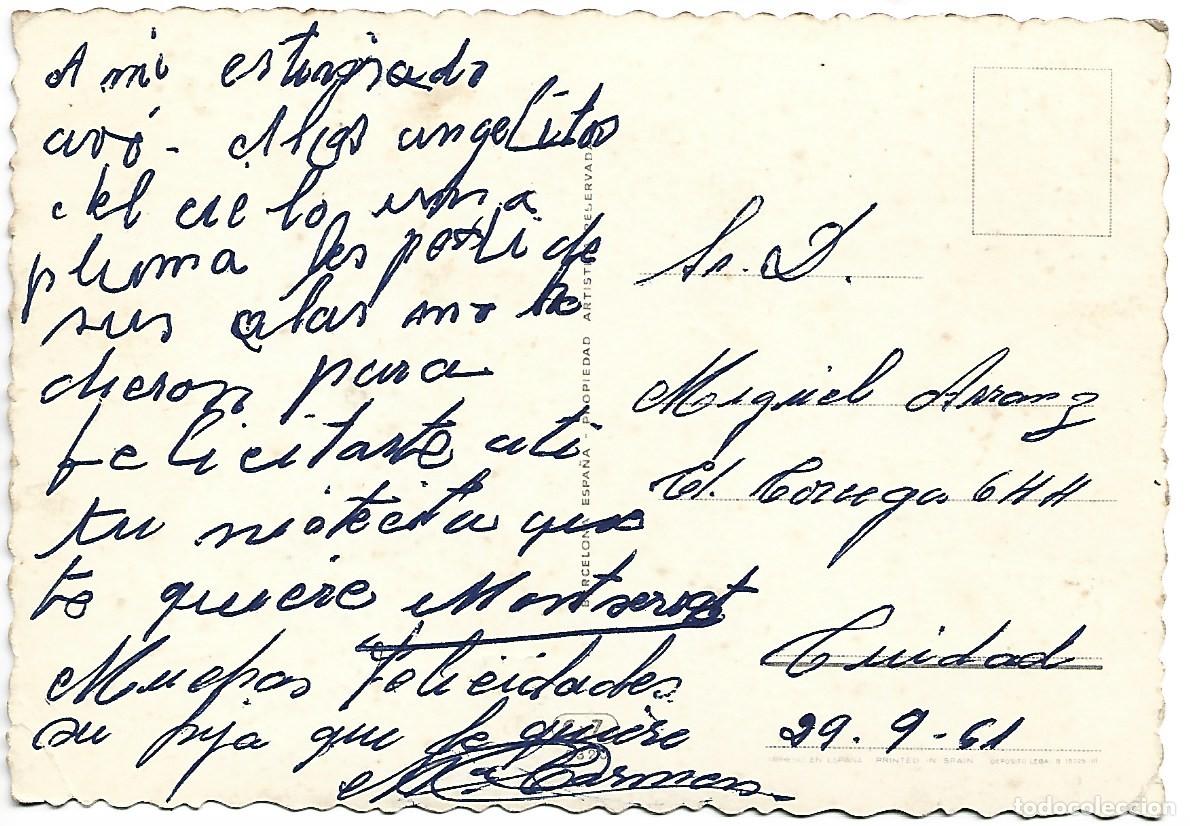 A mi estimado
avó - A los angelitos
del cielo una
pluma les pedi de
sus alas me la
dieron para
felicitarte a ti
tu nietecita que
te quiere Montserrat
Muchas Felicidades
su hija que le quiere
Mª Carmen
BARCELONA ESPAÑA - PROPIEDAD ARTISTICA RESERVADA
Sr. D.
Miguel Arranz
644
Ciudad
29-9-61
IMPRESO EN ESPAÑA PRINTED IN SPAIN DEPOSITO LEGAL B
todocoleccion